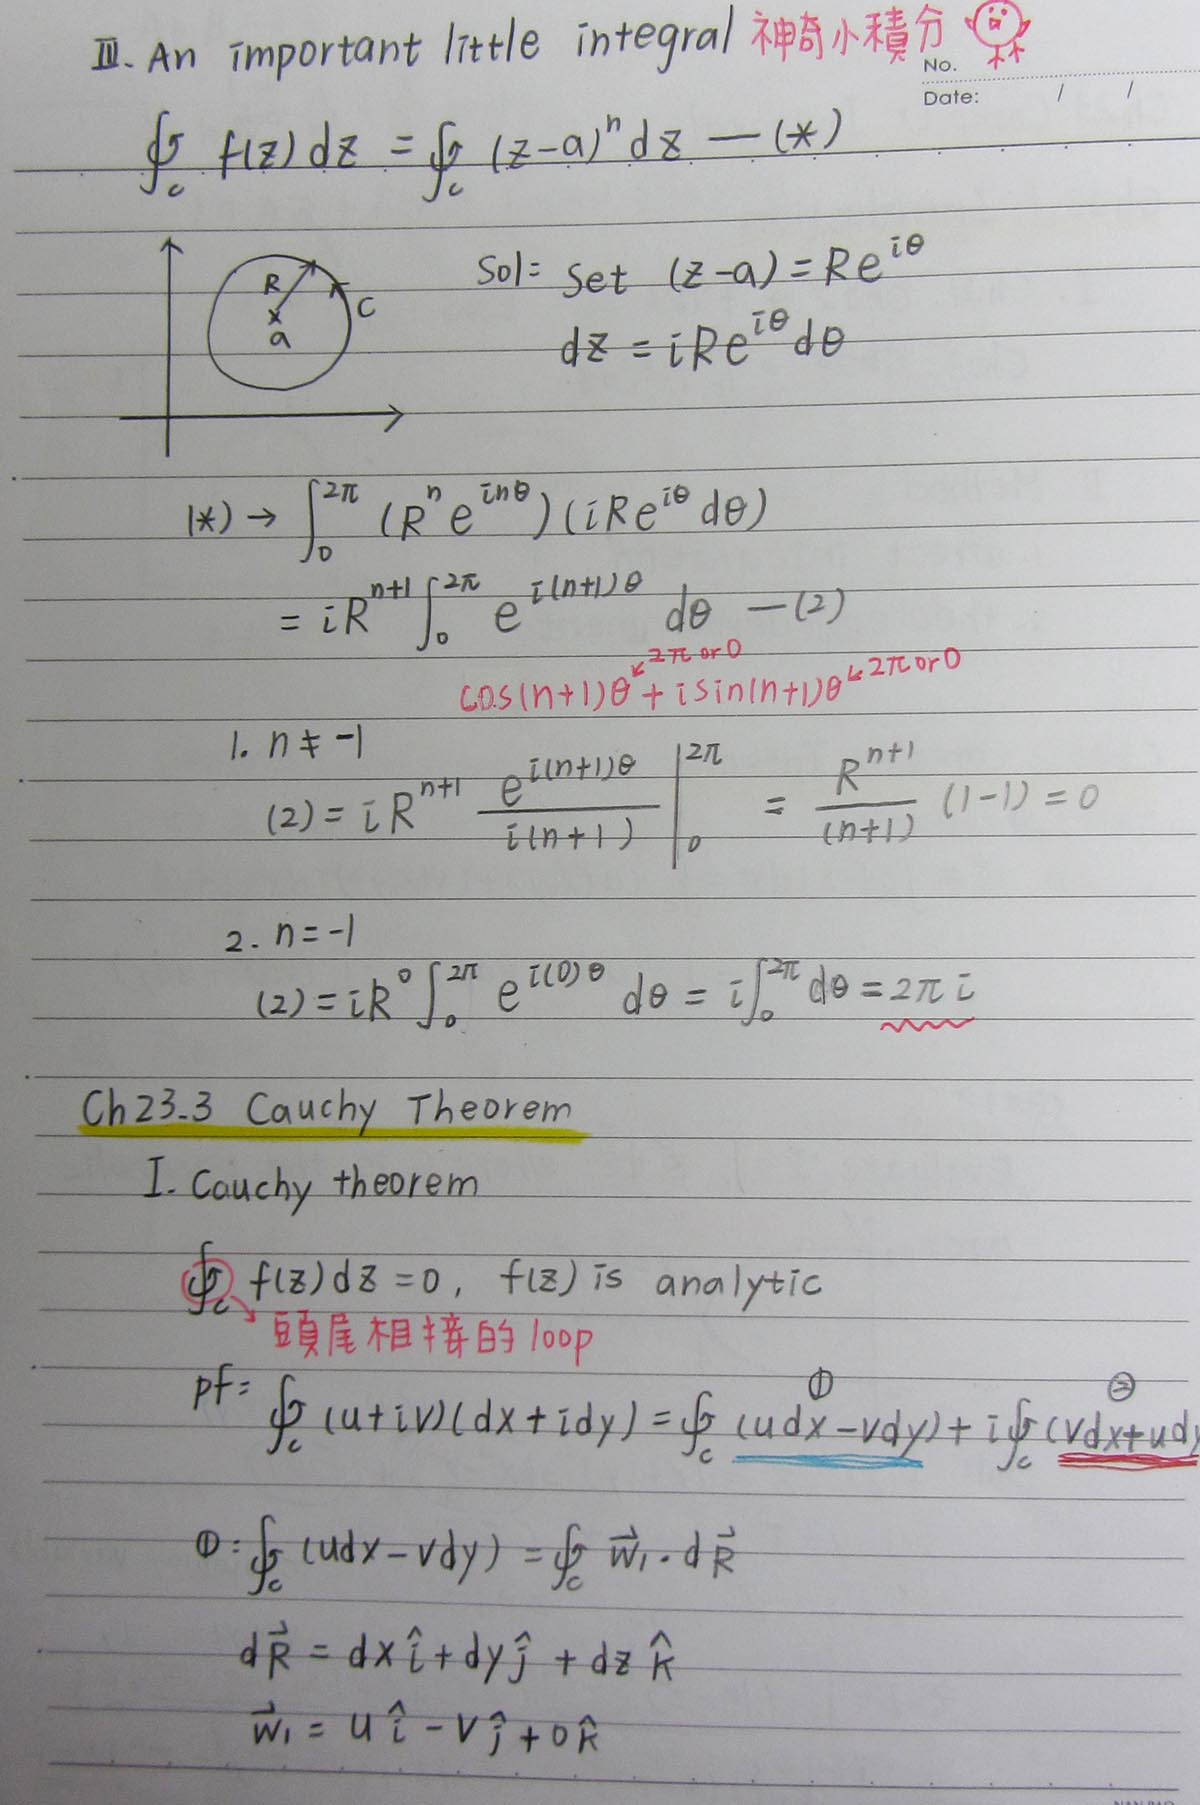 III. An important little integral 神奇小積分
No.
Date: / /
∮c f(z)dz = ∮c (z-a)^n dz —(*)
R
C
a
Sol= Set (z-a)=Re^{iθ}
dz = iRe^{iθ}dθ
(*) → ∫_0^{2π} (R^n e^{inθ})(iRe^{iθ}dθ)
= iR^{n+1} ∫_0^{2π} e^{i(n+1)θ} dθ —(2)
2π or 0
cos(n+1)θ + i sin(n+1)θ 2π or 0
1. n ≠ -1
(2) = iR^{n+1} e^{i(n+1)θ} / i(n+1) |_0^{2π} = R^{n+1} / (n+1) (1-1) = 0
2. n = -1
(2) = iR^0 ∫_0^{2π} e^{i(0)θ} dθ = i∫_0^{2π} dθ = 2πi
Ch23.3 Cauchy Theorem
I. Cauchy theorem
∮c f(z)dz = 0, f(z) is analytic
頭尾相接的loop
① ②
pf= ∮c (u+iv)(dx+idy) = ∮c (udx-vdy) + i∮c (vdx+udy
①: ∮c (udx-vdy) = ∮c W⃗₁ · dR⃗
dR⃗ = dx î + dy ĵ + dz k̂
W⃗₁ = u î - v ĵ + 0 k̂